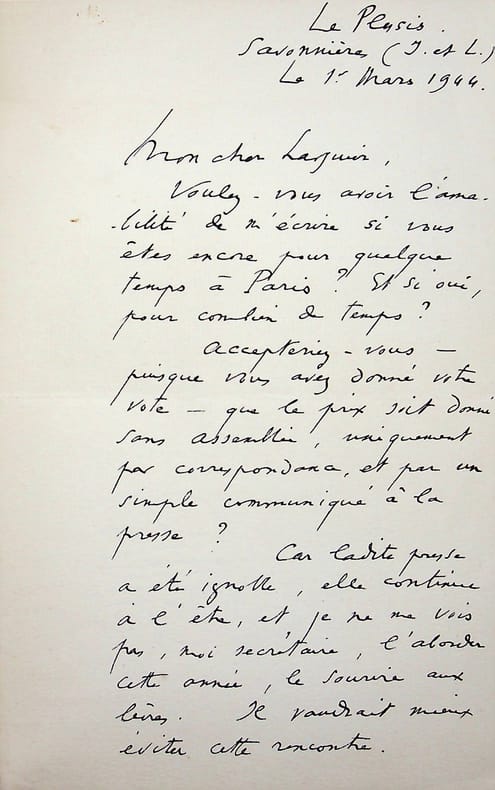 Le Plessis.
Savonnières (I. et L.)
Le 1er Mars 1944.
Mon cher Larguier,
Voulez-vous avoir l'ama-
-bilité de m'écrire si vous
êtes encore pour quelque
temps à Paris ? Et si oui,
pour combien de temps ?
Accepteriez-vous —
puisque vous avez donné votre
vote — que le prix soit donné
sans assemblée, uniquement
par correspondance, et par un
simple communiqué à la
presse ?
Car ladite presse
a été ignoble, elle continue
à l'être, et je ne me vois
pas, moi secrétaire, l'aborder
cette année, le sourire aux
lèvres. Il vaudrait mieux
éviter cette rencontre.